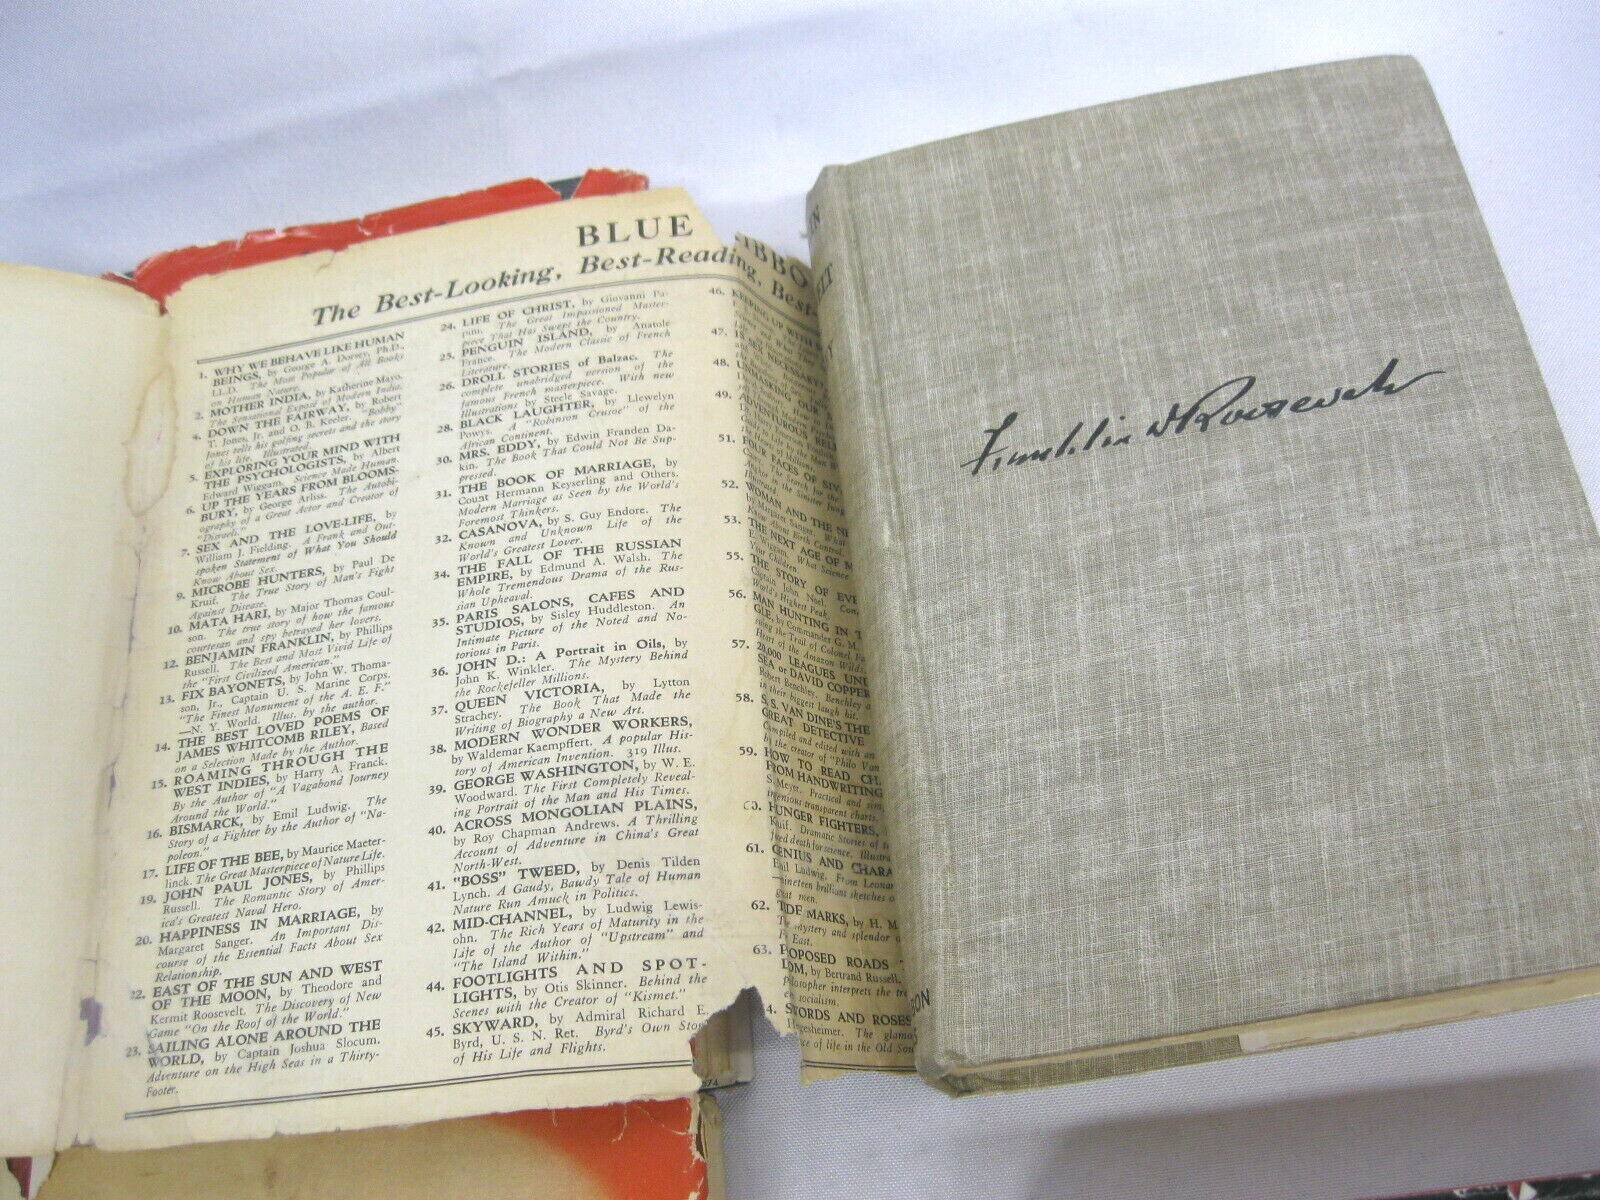 BLUE
The Best-Looking, Best-Reading, Best-
1. WHY WE BEHAVE LIKE HUMAN
BEINGS, by George A. Dorsey, Ph.D.,
LL.D. The Most Popular of All Books
on Human Nature.
2. MOTHER INDIA, by Katherine Mayo.
The Sensational Exposé of Modern India.
4. DOWN THE FAIRWAY, by Robert
T. Jones, Jr. and O. B. Keeler. "Bobby"
Jones tells his golfing secrets and the story
of his life. Illustrated.
5. EXPLORING YOUR MIND WITH
THE PSYCHOLOGISTS, by Albert
Edward Wiggam. Science Made Human.
6. UP THE YEARS FROM BLOOMS-
BURY, by George Arliss. The Autobi-
ography of a Great Actor and Creator of
"Disraeli."
7. SEX AND THE LOVE-LIFE, by
William J. Fielding. A Frank and Out-
spoken Statement of What You Should
Know About Sex.
9. MICROBE HUNTERS, by Paul De
Kruif. The True Story of Man's Fight
Against Disease.
10. MATA HARI, by Major Thomas Coul-
son. The true story of how the famous
courtesan and spy betrayed her lovers.
12. BENJAMIN FRANKLIN, by Phillips
Russell. The Best and Most Vivid Life of
the "First Civilized American."
13. FIX BAYONETS, by John W. Thoma-
son, Jr., Captain U. S. Marine Corps.
"The Finest Monument of the A. E. F."
—N. Y. World. Illus. by the author.
14. THE BEST LOVED POEMS OF
JAMES WHITCOMB RILEY, Based
on a Selection Made by the Author.
15. ROAMING THROUGH THE
WEST INDIES, by Harry A. Franck.
By the Author of "A Vagabond Journey
Around the World."
16. BISMARCK, by Emil Ludwig. The
Story of a Fighter by the Author of "Na-
poleon."
17. LIFE OF THE BEE, by Maurice Maeter-
linck. The Great Masterpiece of Nature Life.
19. JOHN PAUL JONES, by Phillips
Russell. The Romantic Story of Amer-
ica's Greatest Naval Hero.
20. HAPPINESS IN MARRIAGE, by
Margaret Sanger. An Important Dis-
course of the Essential Facts About Sex
Relationship.
22. EAST OF THE SUN AND WEST
OF THE MOON, by Theodore and
Kermit Roosevelt. The Discovery of New
Game "On the Roof of the World."
23. SAILING ALONE AROUND THE
WORLD, by Captain Joshua Slocum.
Adventure on the High Seas in a Thirty-
Footer.
24. LIFE OF CHRIST, by Giovanni Pa-
pini. The Great Impassioned Master-
piece That Has Swept the Country.
25. PENGUIN ISLAND, by Anatole
France. The Modern Classic of French
Literature.
26. DROLL STORIES of Balzac. The
complete unabridged version of the
famous French masterpiece. With new
Illustrations by Steele Savage.
28. BLACK LAUGHTER, by Llewelyn
Powys. A "Robinson Crusoe" of the
African Continent.
30. MRS. EDDY, by Edwin Franden Da-
kin. The Book That Could Not Be Sup-
pressed.
31. THE BOOK OF MARRIAGE, by
Count Hermann Keyserling and Others.
Modern Marriage as Seen by the World's
Foremost Thinkers.
32. CASANOVA, by S. Guy Endore. The
Known and Unknown Life of the
World's Greatest Lover.
34. THE FALL OF THE RUSSIAN
EMPIRE, by Edmund A. Walsh. The
Whole Tremendous Drama of the Rus-
sian Upheaval.
35. PARIS SALONS, CAFES AND
STUDIOS, by Sisley Huddleston. An
Intimate Picture of the Noted and No-
torious in Paris.
36. JOHN D.: A Portrait in Oils, by
John K. Winkler. The Mystery Behind
the Rockefeller Millions.
37. QUEEN VICTORIA, by Lytton
Strachey. The Book That Made the
Writing of Biography a New Art.
38. MODERN WONDER WORKERS,
by Waldemar Kaempffert. A popular His-
tory of American Invention. 319 Illus.
39. GEORGE WASHINGTON, by W. E.
Woodward. The First Completely Reveal-
ing Portrait of the Man and His Times.
40. ACROSS MONGOLIAN PLAINS,
by Roy Chapman Andrews. A Thrilling
Account of Adventure in China's Great
North-West.
41. "BOSS" TWEED, by Denis Tilden
Lynch. A Gaudy, Bawdy Tale of Human
Nature Run Amuck in Politics.
42. MID-CHANNEL, by Ludwig Lewis-
ohn. The Rich Years of Maturity in the
Life of the Author of "Upstream" and
"The Island Within."
44. FOOTLIGHTS AND SPOT-
LIGHTS, by Otis Skinner. Behind the
Scenes with the Creator of "Kismet."
45. SKYWARD, by Admiral Richard E.
Byrd, U. S. N. Ret. Byrd's Own Story
of His Life and Flights.
46. KEEPING UP WITH
47. IS SEX NECESSARY?
48. UNMASKING OUR
49. ADVENTUROUS
51. FOUR FACES OF SIVA
52. WOMAN AND THE
53. THE NEXT AGE OF
55. THE STORY OF
Captain John Noel.
World's Highest Peak.
56. MAN HUNTING IN
GLE, by Commander G. M.
57. 20,000 LEAGUES
SEA or DAVID COPPER
Robert Benchley.
in their biggest laugh hit.
58. S. S. VAN DINE'S
GREAT DETECTIVE
Compiled and edited with an
by the creator of "Philo Van
59. HOW TO READ
FROM HANDWRITING
HUNGER FIGHTERS,
Kruif. Dramatic Stories of
61. GENIUS AND CHARA
Emil Ludwig. From Leonar
—nineteen brilliant sketches
62. TIDE MARKS, by H. M.
mystery and splendor
East.
63. by Bertrand Russell.
SWORDS AND ROSES
of life in the Old
Franklin D Roosevelt